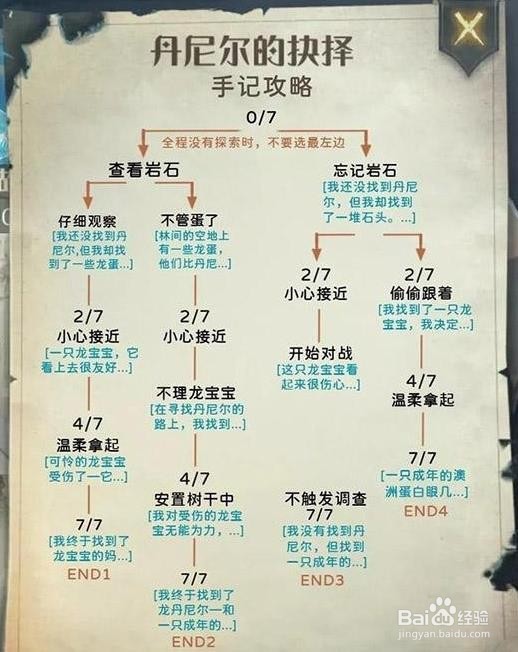 丹尼尔的抉择
手记攻略
0/7
全程没有探索时，不要选最左边
查看岩石
仔细观察
[我还没找到丹
尼尔,但我却找
到了一些龙蛋...]
2/7
小心接近
[一只龙宝宝，它
看上去很友好...]
4/7
温柔拿起
[可怜的龙宝宝
受伤了一它...]
7/7
[我终于找到了
龙宝宝的妈...]
END1
不管蛋了
[林间的空地上
有一些龙蛋，
他们比丹尼...]
2/7
小心接近
不理龙宝宝
[在寻找丹尼尔的
路上，我找到...]
4/7
安置树干中
[我对受伤的龙宝
宝无能为力，...]
7/7
[我终于找到了
龙丹尼尔一和
一只成年的...]
END2
忘记岩石
[我还没找到丹尼
尔，但我却找到
了一堆石头。...]
2/7
小心接近
开始对战
[这只龙宝宝看
起来很伤心...]
不触发调查
7/7
[我没有找到丹
尼尔，但找到
一只成年的...]
END3
2/7
偷偷跟着
[我找到了一只龙
宝宝，我决定...]
4/7
温柔拿起
7/7
[一只成年的澳
洲蛋白眼几...]
END4
Baidu经验
jingyan.baidu.com